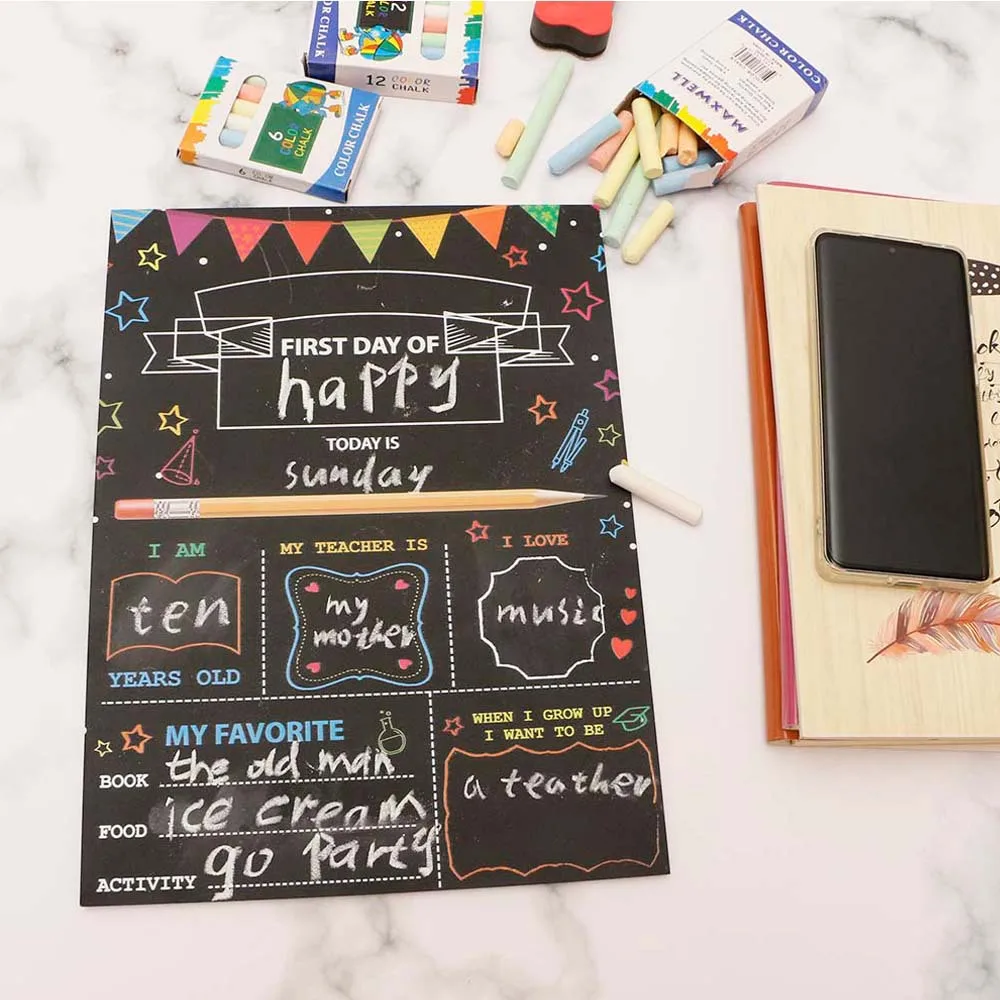 COLOR CHALK
12
12 COLOR
CHALK
6
COLOR
CHALK
COLOR CHALK
6 COLOR
COLOR CHALK
MAXWELL
FIRST DAY OF
happy
TODAY IS
sunday
I AM
ten
YEARS OLD
MY TEACHER IS
my
mother
I LOVE
music
MY FAVORITE
BOOK the old man
FOOD ice cream
ACTIVITY go party
WHEN I GROW UP
I WANT TO BE
a teather